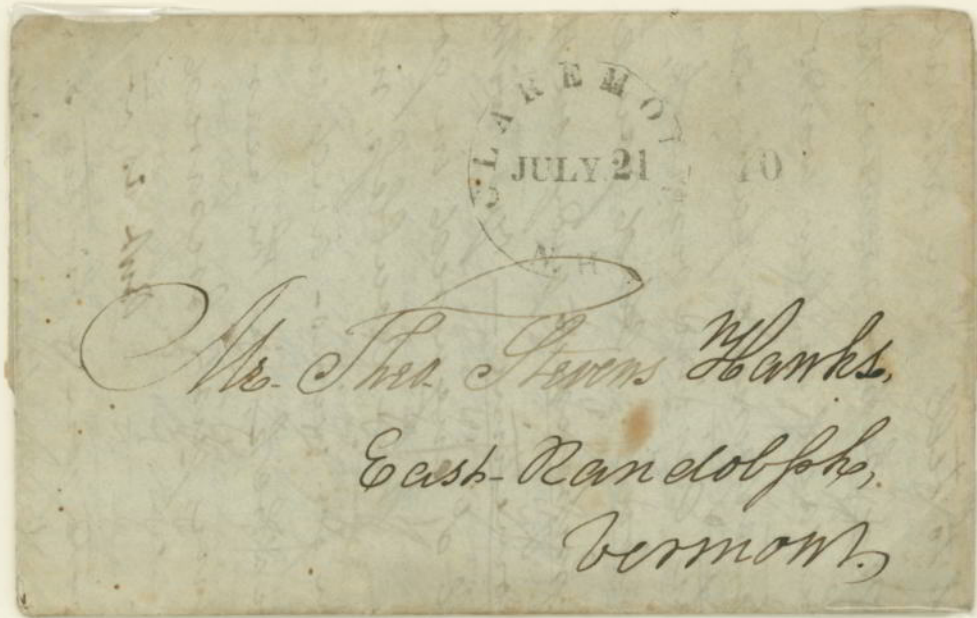 CLAREMONT
JULY 21
10
N.H.
Mr. Theo. Stevens Hawks,
East-Randolph,
Vermont.